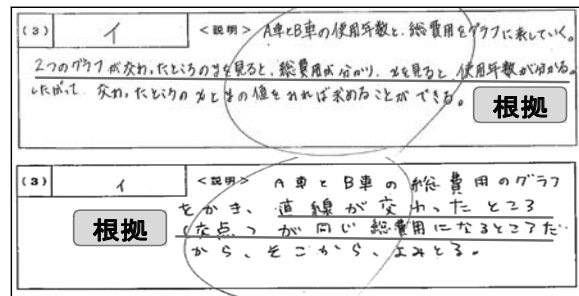 (3) イ <説明> A車とB車の使用年数と、総費用をグラフに表していく。
2つのグラフが交わったところのyを見ると、総費用が分かり、xを見ると、使用年数が分かる。
したがって 交わったところの xとyの値をみれば求めることができる。
根拠
(3) イ <説明> A車とB車の総費用のグラフ
をかき、直線が交わったところ
(交点)が同じ総費用になるところだ
根拠
から、そこから、よみとる。